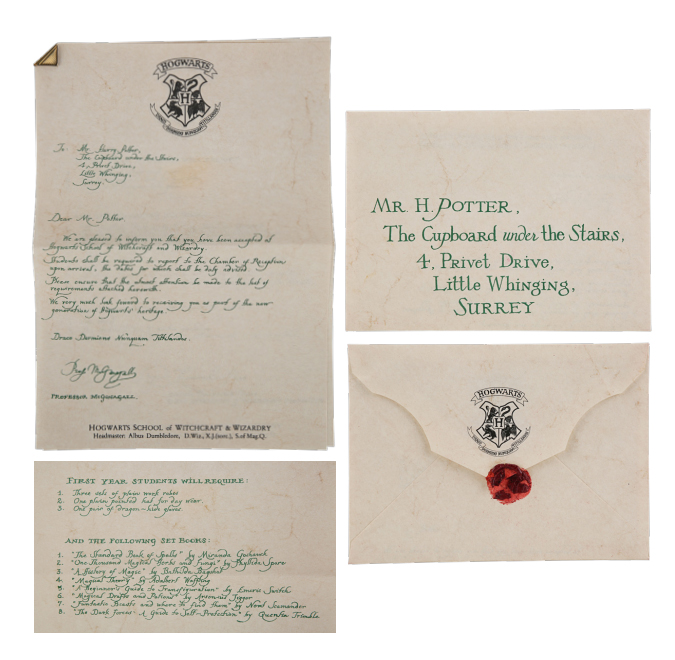 HOGWARTS
To Mr. Harry Potter,
The Cupboard under the Stairs,
4, Privet Drive,
Little Whinging,
Surrey.
Dear Mr. Potter.
We are pleased to inform you that you have been accepted at
Hogwarts School of Witchcraft and Wizardry.
Students shall be required to report to the Chamber of Reception
upon arrival, the dates for which shall be duly advised.
Please ensure that the utmost attention be made to the list of
requirements attached herewith.
We very much look forward to receiving you as part of the new
generation of Hogwarts' heritage.
Draco Dormiens Nunquam Titillandus.
Prof. McGonagall
PROFESSOR MCGONAGALL
HOGWARTS SCHOOL of WITCHCRAFT & WIZARDRY
Headmaster: Albus Dumbledore, D.Wiz., X.J.(sorc.), S.of Mag.Q.
FIRST YEAR STUDENTS WILL REQUIRE:
1. Three sets of plain work robes
2. One plain pointed hat for day wear.
3. One pair of dragon-hide gloves
AND THE FOLLOWING SET BOOKS:
1. "The Standard Book of Spells" by Miranda Goshawk
2. "One Thousand Magical Herbs and Fungi" by Phyllida Spore
3. "A History of Magic" by Bathilda Bagshot
4. "Magical Theory" by Adalbert Waffling
5. "A Beginner's Guide to Transfiguration" by Emeric Switch
6. "Magical Drafts and Potions" by Arsenius Jigger
7. "Fantastic Beasts and where to find them" by Newt Scamander
8. "The Dark Forces- A Guide to Self-Protection" by Quentin Trimble
MR. H. POTTER,
The Cupboard under the Stairs,
4, Privet Drive,
Little Whinging,
SURREY
HOGWARTS